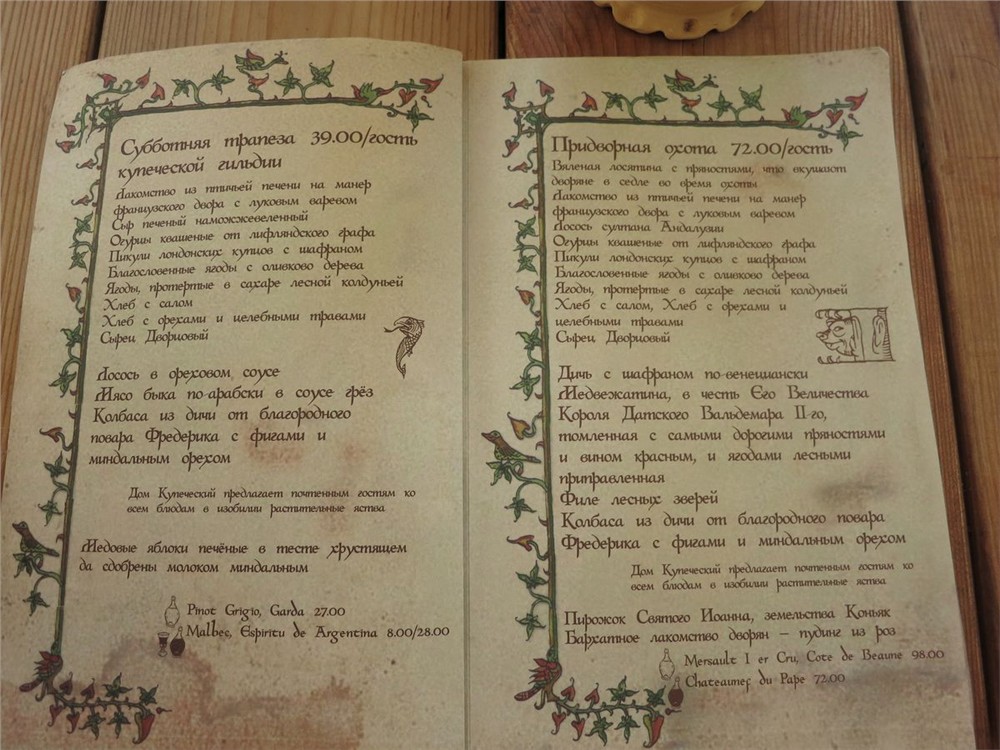 Субботняя трапеза 39.00/гость
купеческой гильдии
Лакомство из птичьей печени на манер
французского двора с луковым варевом
Сыр печеный наможжевеленный
Огурцы квашеные от лифляндского графа
Пикули лондонских купцов с шафраном
Благословенные ягоды с оливково дерева
Ягоды, протертые в сахаре лесной колдуньей
Хлеб с салом
Хлеб с орехами и целебными травами
Сырец Дворцовый
Лосось в ореховом соусе
Мясо быка по-арабски в соусе грёз
Колбаса из дичи от благородного
повара Фредерика с фигами и
миндальным орехом
Дом Купеческий предлагает почтенным гостям ко
всем блюдам в изобилии растительные яства
Медовые яблоки печёные в тесте хрустящем
да сдобрены молоком миндальным
Pinot Grigio, Garda 27.00
Malbec, Espiritu de Argentina 8.00/28.00
Придворная охота 72.00/гость
Вяленая лосятина с пряностями, что вкушают
дворяне в седле во время охоты
Лакомство из птичьей печени на манер
французского двора с луковым варевом
Лосось султана Андалузии
Огурцы квашеные от лифляндского графа
Пикули лондонских купцов с шафраном
Благословенные ягоды с оливково дерева
Ягоды, протертые в сахаре лесной колдуньей
Хлеб с салом, Хлеб с орехами и
целебными травами
Сырец Дворцовый
Дичь с шафраном по-венециански
Медвежатина, в честь Его Величества
Короля Датского Вальдемара II-го,
томленная с самыми дорогими пряностями
и вином красным, и ягодами лесными
приправленная
Филе лесных зверей
Колбаса из дичи от благородного повара
Фредерика с фигами и миндальным орехом
Дом Купеческий предлагает почтенным гостям ко
всем блюдам в изобилии растительные яства
Пирожок Святого Иоанна, земельства Коньяк
Бархатное лакомство дворян – пудинг из роз
Mersault 1 er Cru, Cote de Beaune 98.00
Chateaunef du Pape 72.00